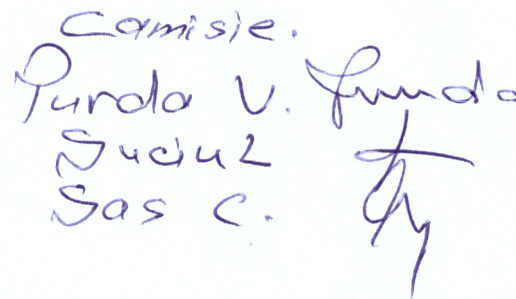 Comisie.
Purda V.
Suciu L
Sas C.